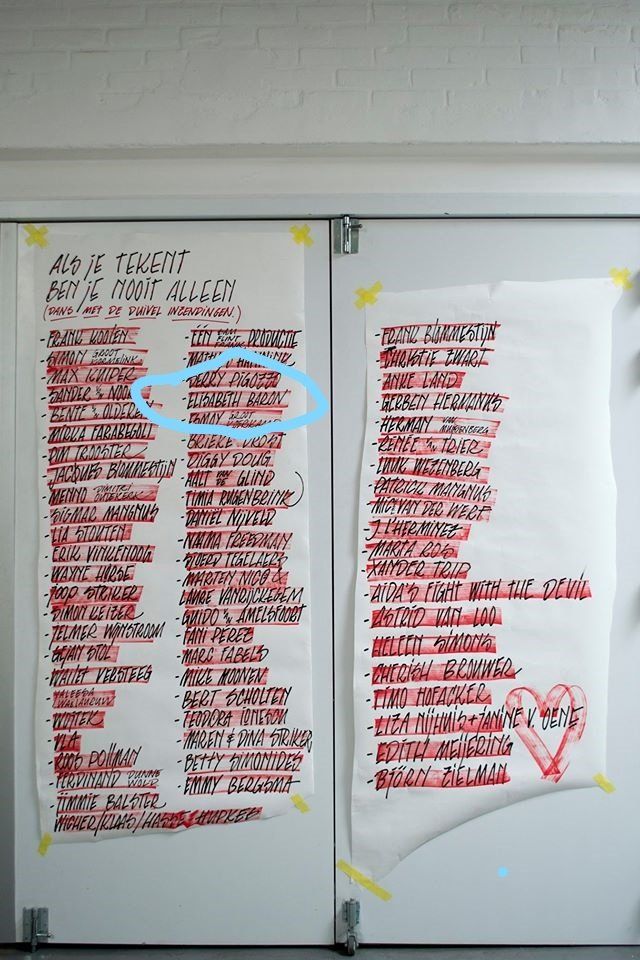 ALS JE TEKENT
BEN JE NOOIT ALLEEN
(DANS MET DE DUIVEL INZENDINGEN.)
- FRANK KOOIEN
- SIMON GROOT
- MAX KUIPER
- SANDER
- BENTE V/D OLDEREN
- MIRKA FARABEGOLI
- TROOSTER
- JACQUES BLOMMESTIJN
- MENNO DIMITRI
- SIGMAR MANGNUS
- LIA STOUTEN
- ERIK VINKENOOG
- WAYNE HORSE
- JOOP STRIKER
- SIMON KEIZER
- JELMER WIJNSTROOM
- STOL
- WALLET VERSTEEG
- VALEESA
- WOTEK
- VLA
- ROOS POLLMAN
- FERDINAND DUNNE WOLD
- TIMMIE BALSTER
WICHER/KLAAS/
- ÉÉN PRODUCTIE
- DERRY PIGOZZO
- ELISABETH BARON
- GROOT
- BRIEKE DROST
- ZIGGY DOUG
- AALT VAN DE GLIND
- TIMJA RUGENBRINK
- DANIËL NIJVELD
- NAIMA FREEDMAN
- SJOERD TEGELAERS
- MAARTEN NICO
- LAURE VANRIJCKEGEM
- GUIDO V/N AMELSFOORT
- FANI PEREZ
- MARC FABELS
- MIKE MOONEN
- BERT SCHOLTEN
- TEODORA IONESCU
- MAREN & DINA STRIKER
- BETTY SIMONIDES
- EMMY BERGSMA
- FRANK BLOMMESTIJN
- CHRISTIE ZWART
- ANKE LAND
- GERBEN HERMANUS
- HERMAN VAN MUIJDENBERG
- RENÉE V/N TRIER
- LUUK WEZENBERG
- PATRICK MANGNUS
- MICK VAN DER WERF
- J L'HERMINEZ
- MARTA ROS
- XANDER TRIP
- AÏDA'S FIGHT WITH THE DEVIL
- ASTRID VAN LOO
- HELEEN SIMONS
- CHERISH BROUWER
- TIMO HOFACKER
- LIZA NIJHUIS + JANINE V. OENE
- EDITH MEIJERING
- BJÖRN ZIELMAN